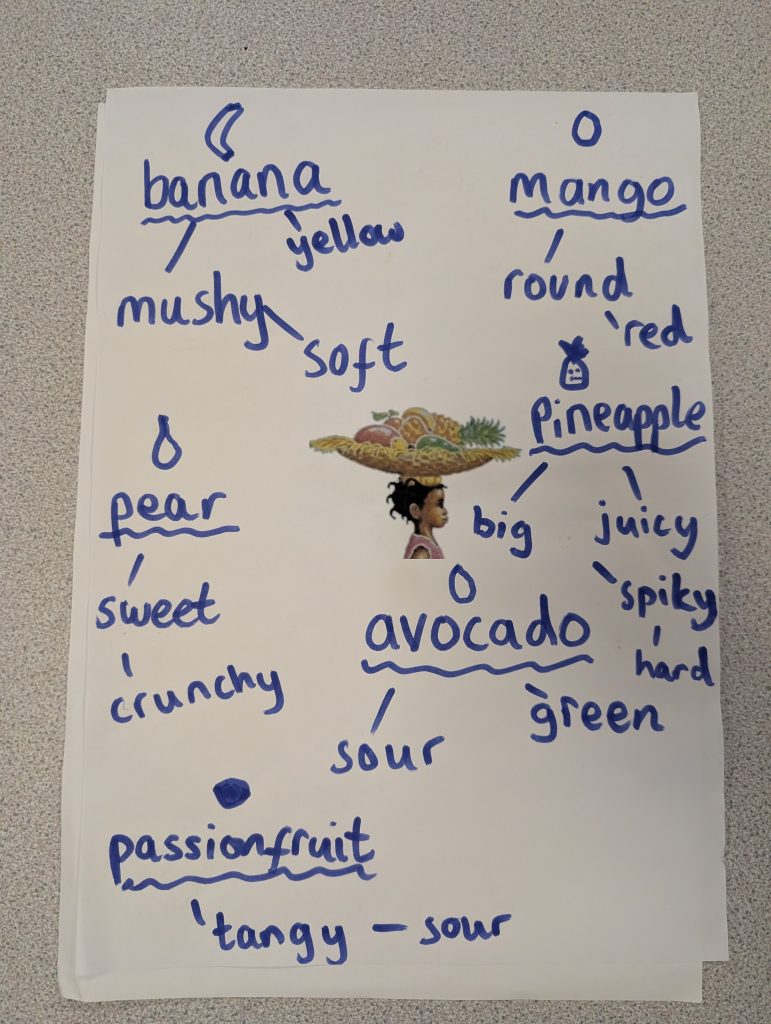 banana
yellow
mushy
soft
mango
round
red
pineapple
big
juicy
spiky
hard
pear
sweet
crunchy
avocado
sour
green
passionfruit
tangy – sour